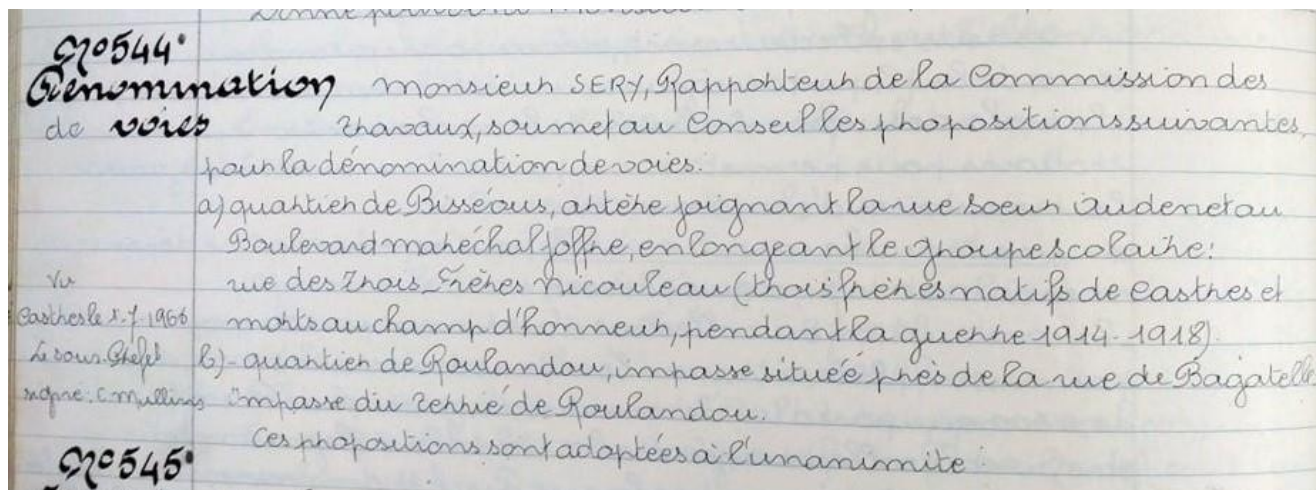 N° 544
Dénomination de voies
Monsieur SERY, Rapporteur de la Commission des
travaux, soumet au Conseil les propositions suivantes
pour la dénomination de voies:
a) quartier de Bisséous, artère joignant la rue Soeur Audenet au
Boulevard maréchal Joffre, en longeant le groupe scolaire:
rue des Trois Frères Nicouleau (trois frères natifs de Castres et
morts au champ d'honneur, pendant la guerre 1914-1918).
b)- quartier de Roulandou, impasse située près de la rue de Bagatelle
Impasse du Terrié de Roulandou.
Ces propositions sont adoptées à l'unanimité.
Vu
Castres le 1966
Le sous-Préfet
signé:
N° 545